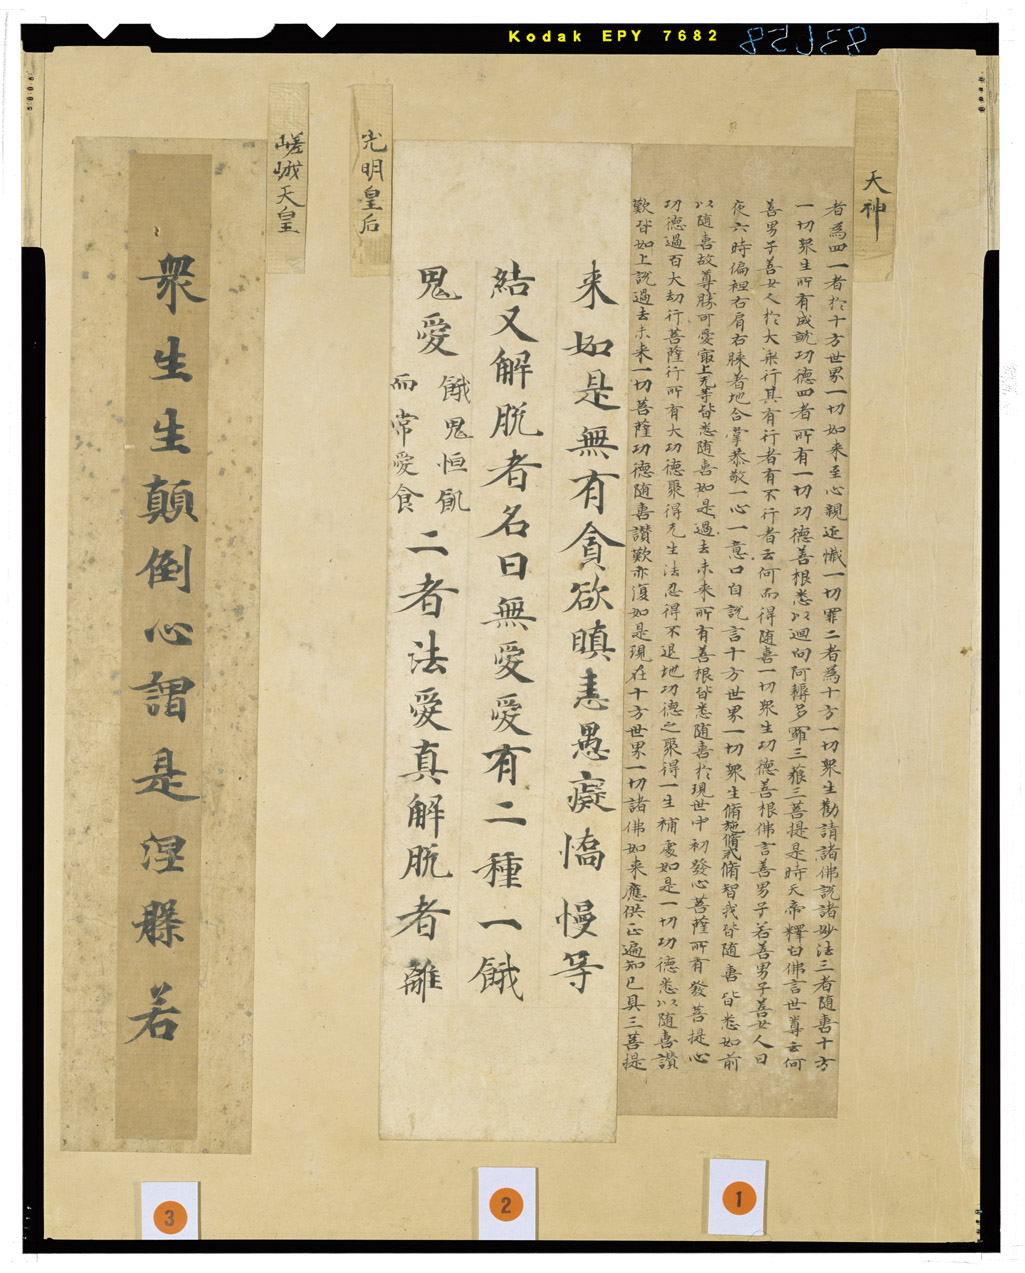 Kodak EPY 7682
天神
者為四一者於十方世界一切如来至心親近懺一切罪二者為十方一切衆生勸請諸佛説諸妙法三者随喜十方
一切衆生所有成就功德四者所有一切功德善根悉以迴向阿耨多羅三藐三菩提是時天帝釋白佛言世尊云何
善男子善女人於大乘行其有行者有不行者云何而得随喜一切衆生功德善根佛言善男子若善男子善女人日
夜六時偏袒右肩右膝著地合掌恭敬一心一意口自説言十方世界一切衆生脩施脩戒脩智我皆随喜皆悉如前
以随喜故尊勝可愛最上无等皆悉随喜如是過去未来所有善根皆悉随喜於現世中初發心菩薩所有發菩提心
功德過百大劫行菩薩行所有大功德聚得无生法忍得不退地功德之聚得一生補處如是一切功德悉以随喜讃
歎皆如上説過去未来一切菩薩功德随喜讃歎亦復如是現在十方世界一切諸佛如来應供正遍知已具三菩提
光明皇后
来如是無有貪欲瞋恚愚癡憍慢等
結又解脱者名曰無愛愛有二種一餓
鬼愛
餓鬼恒飢
而常愛食
二者法愛真解脱者離
嵯峨天皇
衆生生顛倒心謂是涅槃若
1
2
3